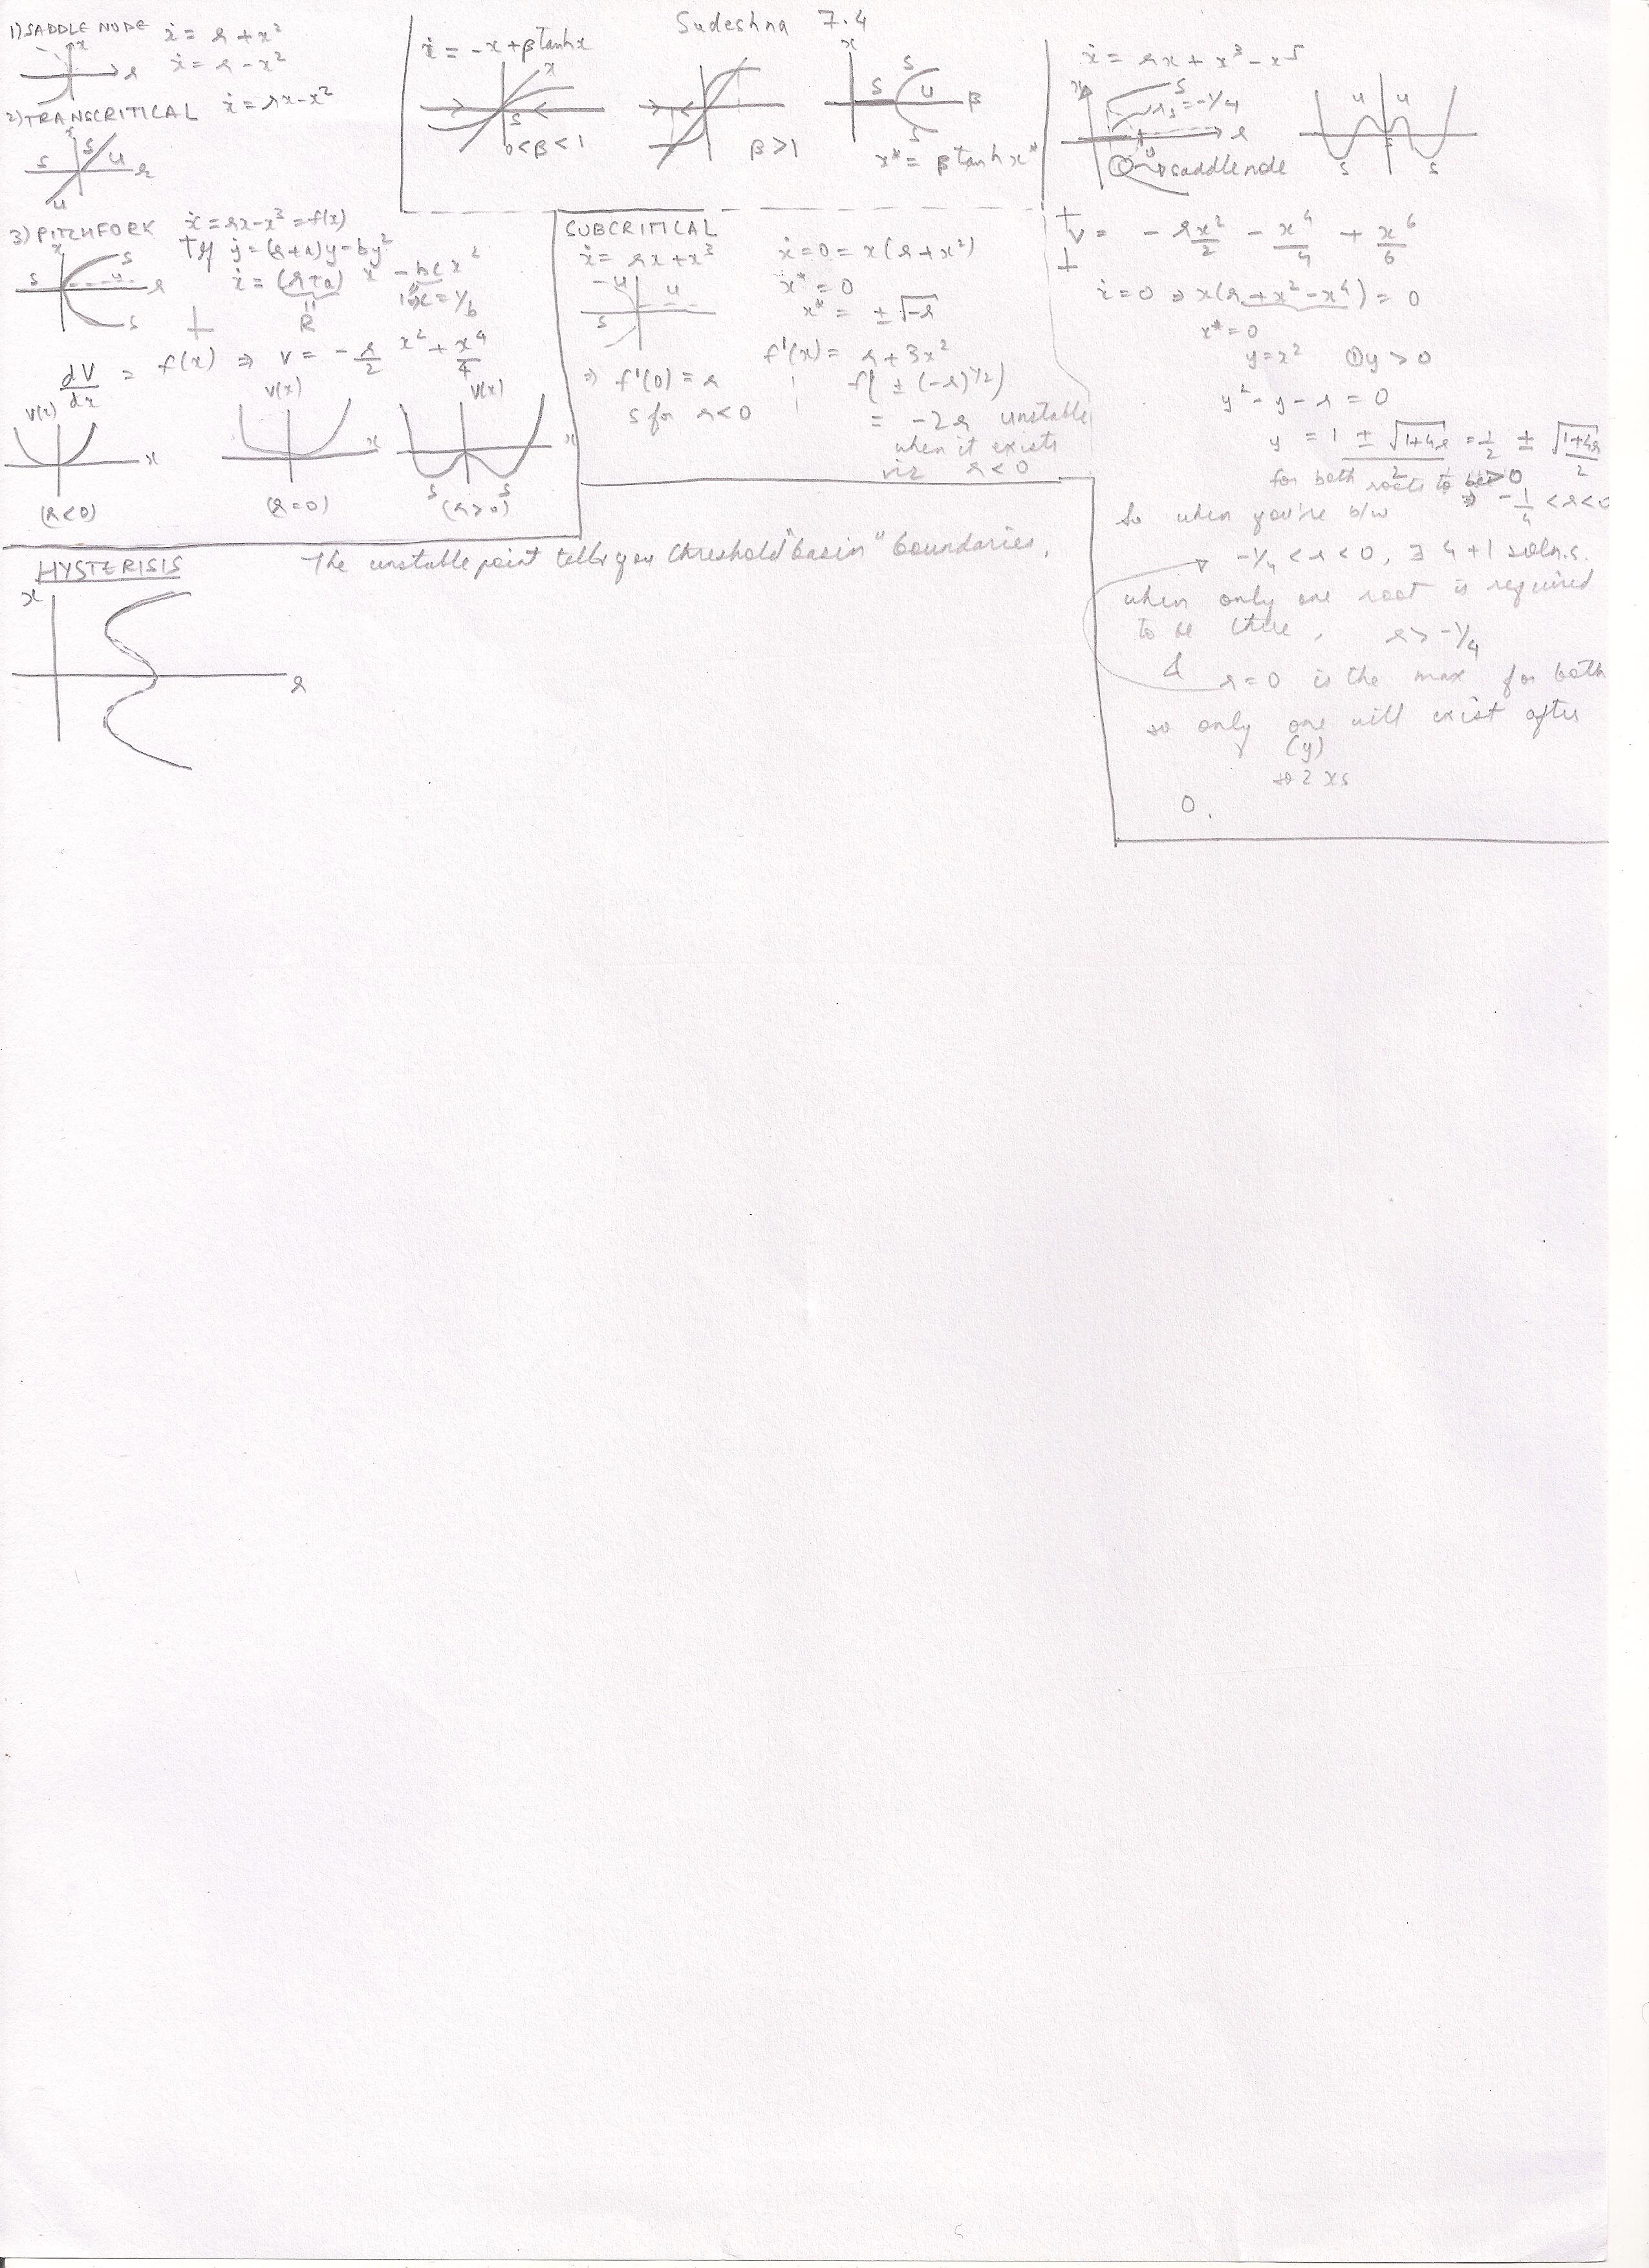 Sudeshna 7.4
1) SADDLE NODE ẋ = r + x²
ẋ = r - x²
x
r
2) TRANSCRITICAL ẋ = rx - x²
x
S S U r
U
3) PITCHFORK ẋ = rx - x³ = f(x)
Try ẏ = (r+a)y - by²
x
S S U r
S
ẋ = (r+a) x - bc x²
R
c = 1/b
dV/dx = f(x) ⇒ V = -r/2 x² + x⁴/4
V(x) V(x) V(x)
x x x
S S
(r<0) (r=0) (r>0)
ẋ = -x + β tanh x
x
S
0<β<1
β>1
x
S S U β
S
x* = β tanh x*
SUBCRITICAL
ẋ = rx + x³
U U
S
ẋ = 0 = x(r + x²)
x* = 0
x* = ± √-r
f'(x) = r + 3x²
⇒ f'(0) = r
S for r<0
f(± (-r)^1/2)
= -2r unstable
when it exists
viz r<0
ẋ = rx + x³ - x⁵
x
S
rₛ = -1/4
r
U
saddle node
U U
S S S
V = - rx²/2 - x⁴/4 + x⁶/6
ẋ = 0 ⇒ x(r + x² - x⁴) = 0
x* = 0
y = x² ① y > 0
y² - y - r = 0
y = 1 ± √1+4r / 2 = 1/2 ± √1+4r / 2
for both roots to be >0
⇒ -1/4 < r < 0
So when you're b/w
-1/4 < r < 0, ∃ 4 + 1 solns.
when only one root is required
to be there, r > -1/4
& r = 0 is the max for both
so only one will exist after
(y)
⇒ 2 xs
0.
HYSTERISIS
The unstable point tells you threshold "basin" boundaries.
x
r